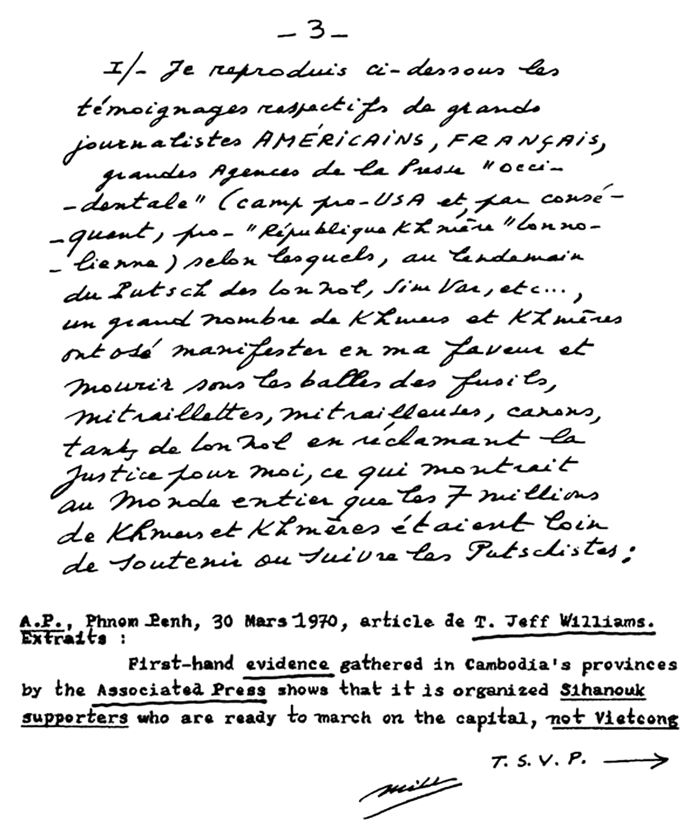 - 3 -
I/- Je reproduis ci-dessous les
témoignages respectifs de grands
journalistes AMÉRICAINS, FRANÇAIS,
grandes Agences de la Presse "occi-
-dentale" (camp pro-USA et, par consé-
-quent, pro- "République Khmère" lonno-
-lienne) selon lesquels, au lendemain
du Putsch des Lon Nol, Sim Var, etc...,
un grand nombre de Khmers et Khmères
ont osé manifester en ma faveur et
mourir sous les balles des fusils,
mitraillettes, mitrailleuses, canons,
tanks de Lon Nol en réclamant la
Justice pour moi, ce qui montrait
au Monde entier que les 7 millions
de Khmers et Khmères étaient loin
de soutenir ou suivre les Putschistes :
A.P., Phnom Penh, 30 Mars 1970, article de T. Jeff Williams.
Extraits :
First-hand evidence gathered in Cambodia's provinces
by the Associated Press shows that it is organized Sihanouk
supporters who are ready to march on the capital, not Vietcong
T. S. V. P. →